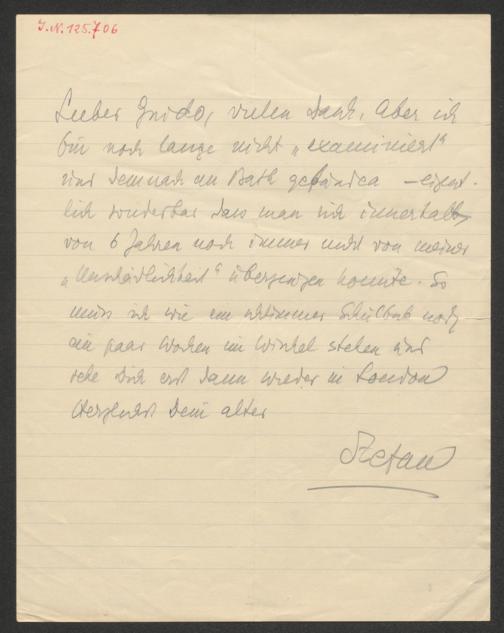 J.N. 125.706
Lieber Guido, vielen Dank, Aber ich
bin noch lange nicht „examiniert“
und demnach in Bath gefangen – eigent-
lich sonderbar dass man sich innerhalb
von 6 Jahren noch immer nicht von meiner
„Unschädlichkeit“ überzeugen konnte. So
muss ich wie ein schlimmer Schulbub noch
ein paar Wochen im Winkel stehen und
sehe Dich erst dann wieder in London
Herzlichst Dein alter
Stefan